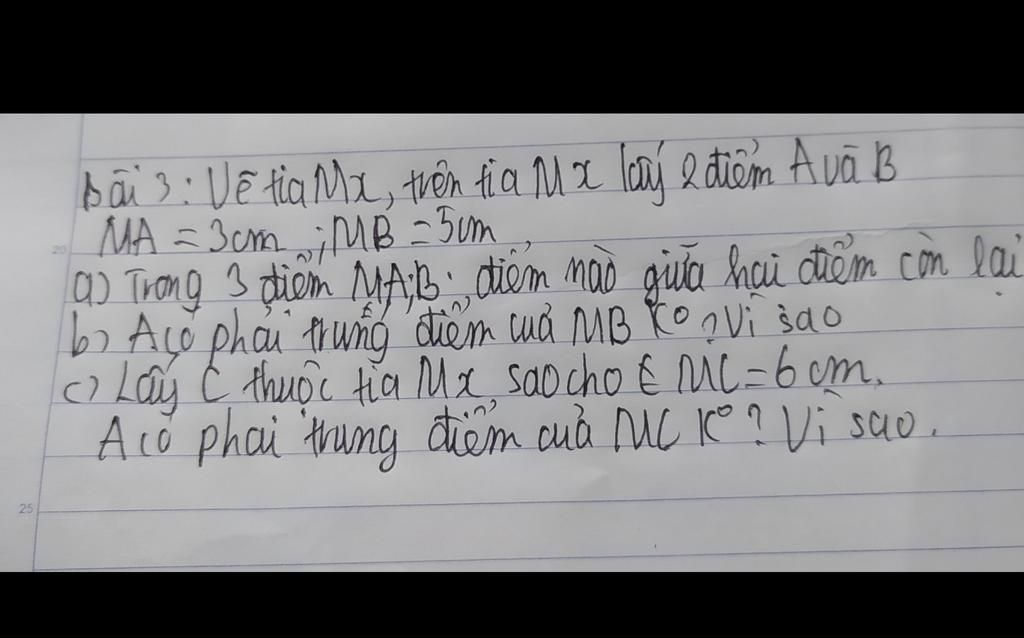 Bài 3: Vẽ tia Mx, trên tia Mx lấy 2 điểm A và B
MA = 3cm ; MB = 5cm
a) Trong 3 điểm M,A,B; điểm nào giữa hai điểm còn lại
b) A có phải trung điểm của MB K° ? Vì sao
c) Lấy C thuộc tia Mx, sao cho MC = 6 cm.
A có phải trung điểm của MC K° ? Vì sao.
20
25